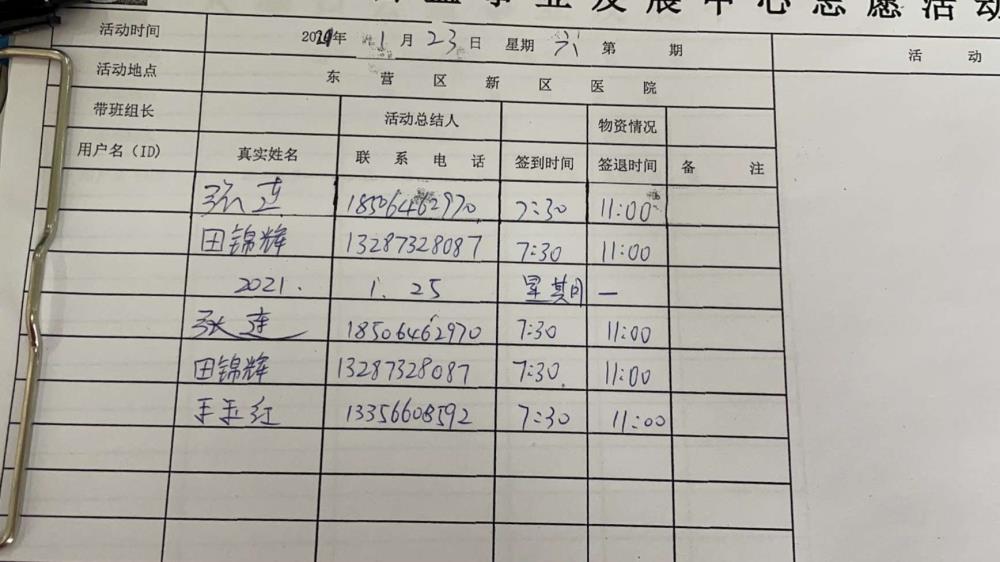 益事业发展中心志愿活动
活动时间 2021年 1月23日 星期六 第 期
活动
活动地点 东营区新区医院
带班组长 活动总结人 物资情况
用户名(ID) 真实姓名 联系电话 签到时间 签退时间 备注
张连 18506462970 7:30 11:00
田锦辉 13287328087 7:30 11:00
2021. 1. 25 星期一
张连 18506462970 7:30 11:00
田锦辉 13287328087 7:30 11:00
王玉红 13356608592 7:30 11:00